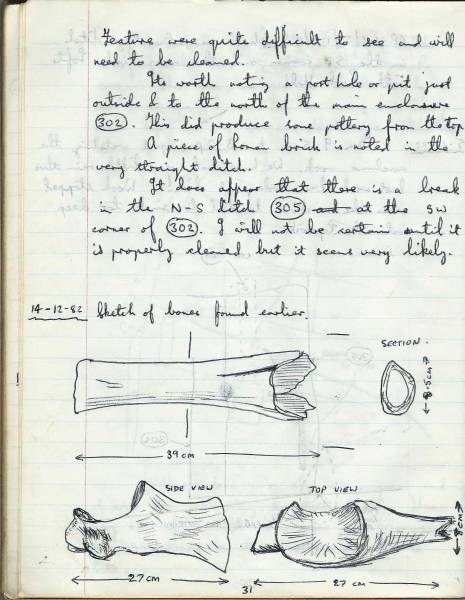 Feature were quite difficult to see and will
need to be cleaned.
Its worth noting a post hole or pit just
outside & to the north of the main enclosure
(302). This did produce some pottery from the top.
A piece of Roman brick is noted in the
very straight ditch.
It does appear that there is a break
in the N-S ditch (305) and at the SW
corner of (302). I will not be certain until it
is properly cleaned but it seems very likely.
14-12-82 Sketch of bones found earlier.
SECTION.
8.5cm
39cm
SIDE VIEW
TOP VIEW
8cm
27cm
27cm
31